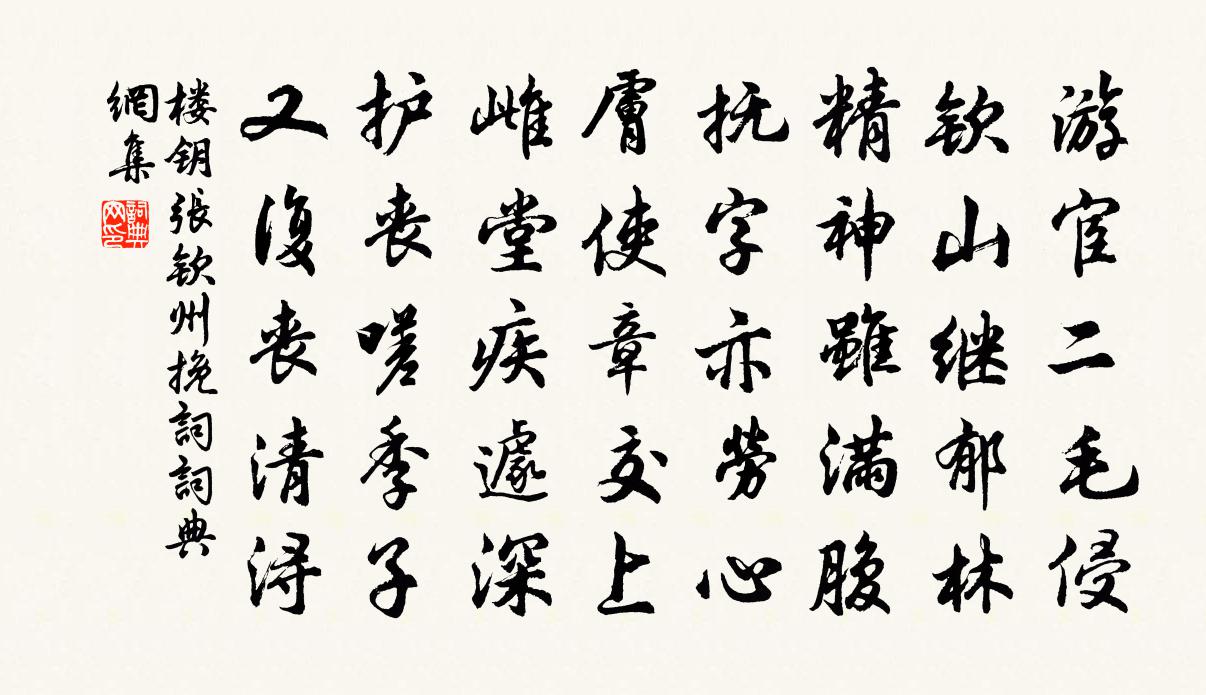 游宦二毛侵
钦山继郁林
精神雖满腹
抚字亦勞心
膚使章交上
雌堂疾遽深
护丧嗟季子
又復丧清浔
楼钥張钦州挽詞詞典
網集
詞典网印